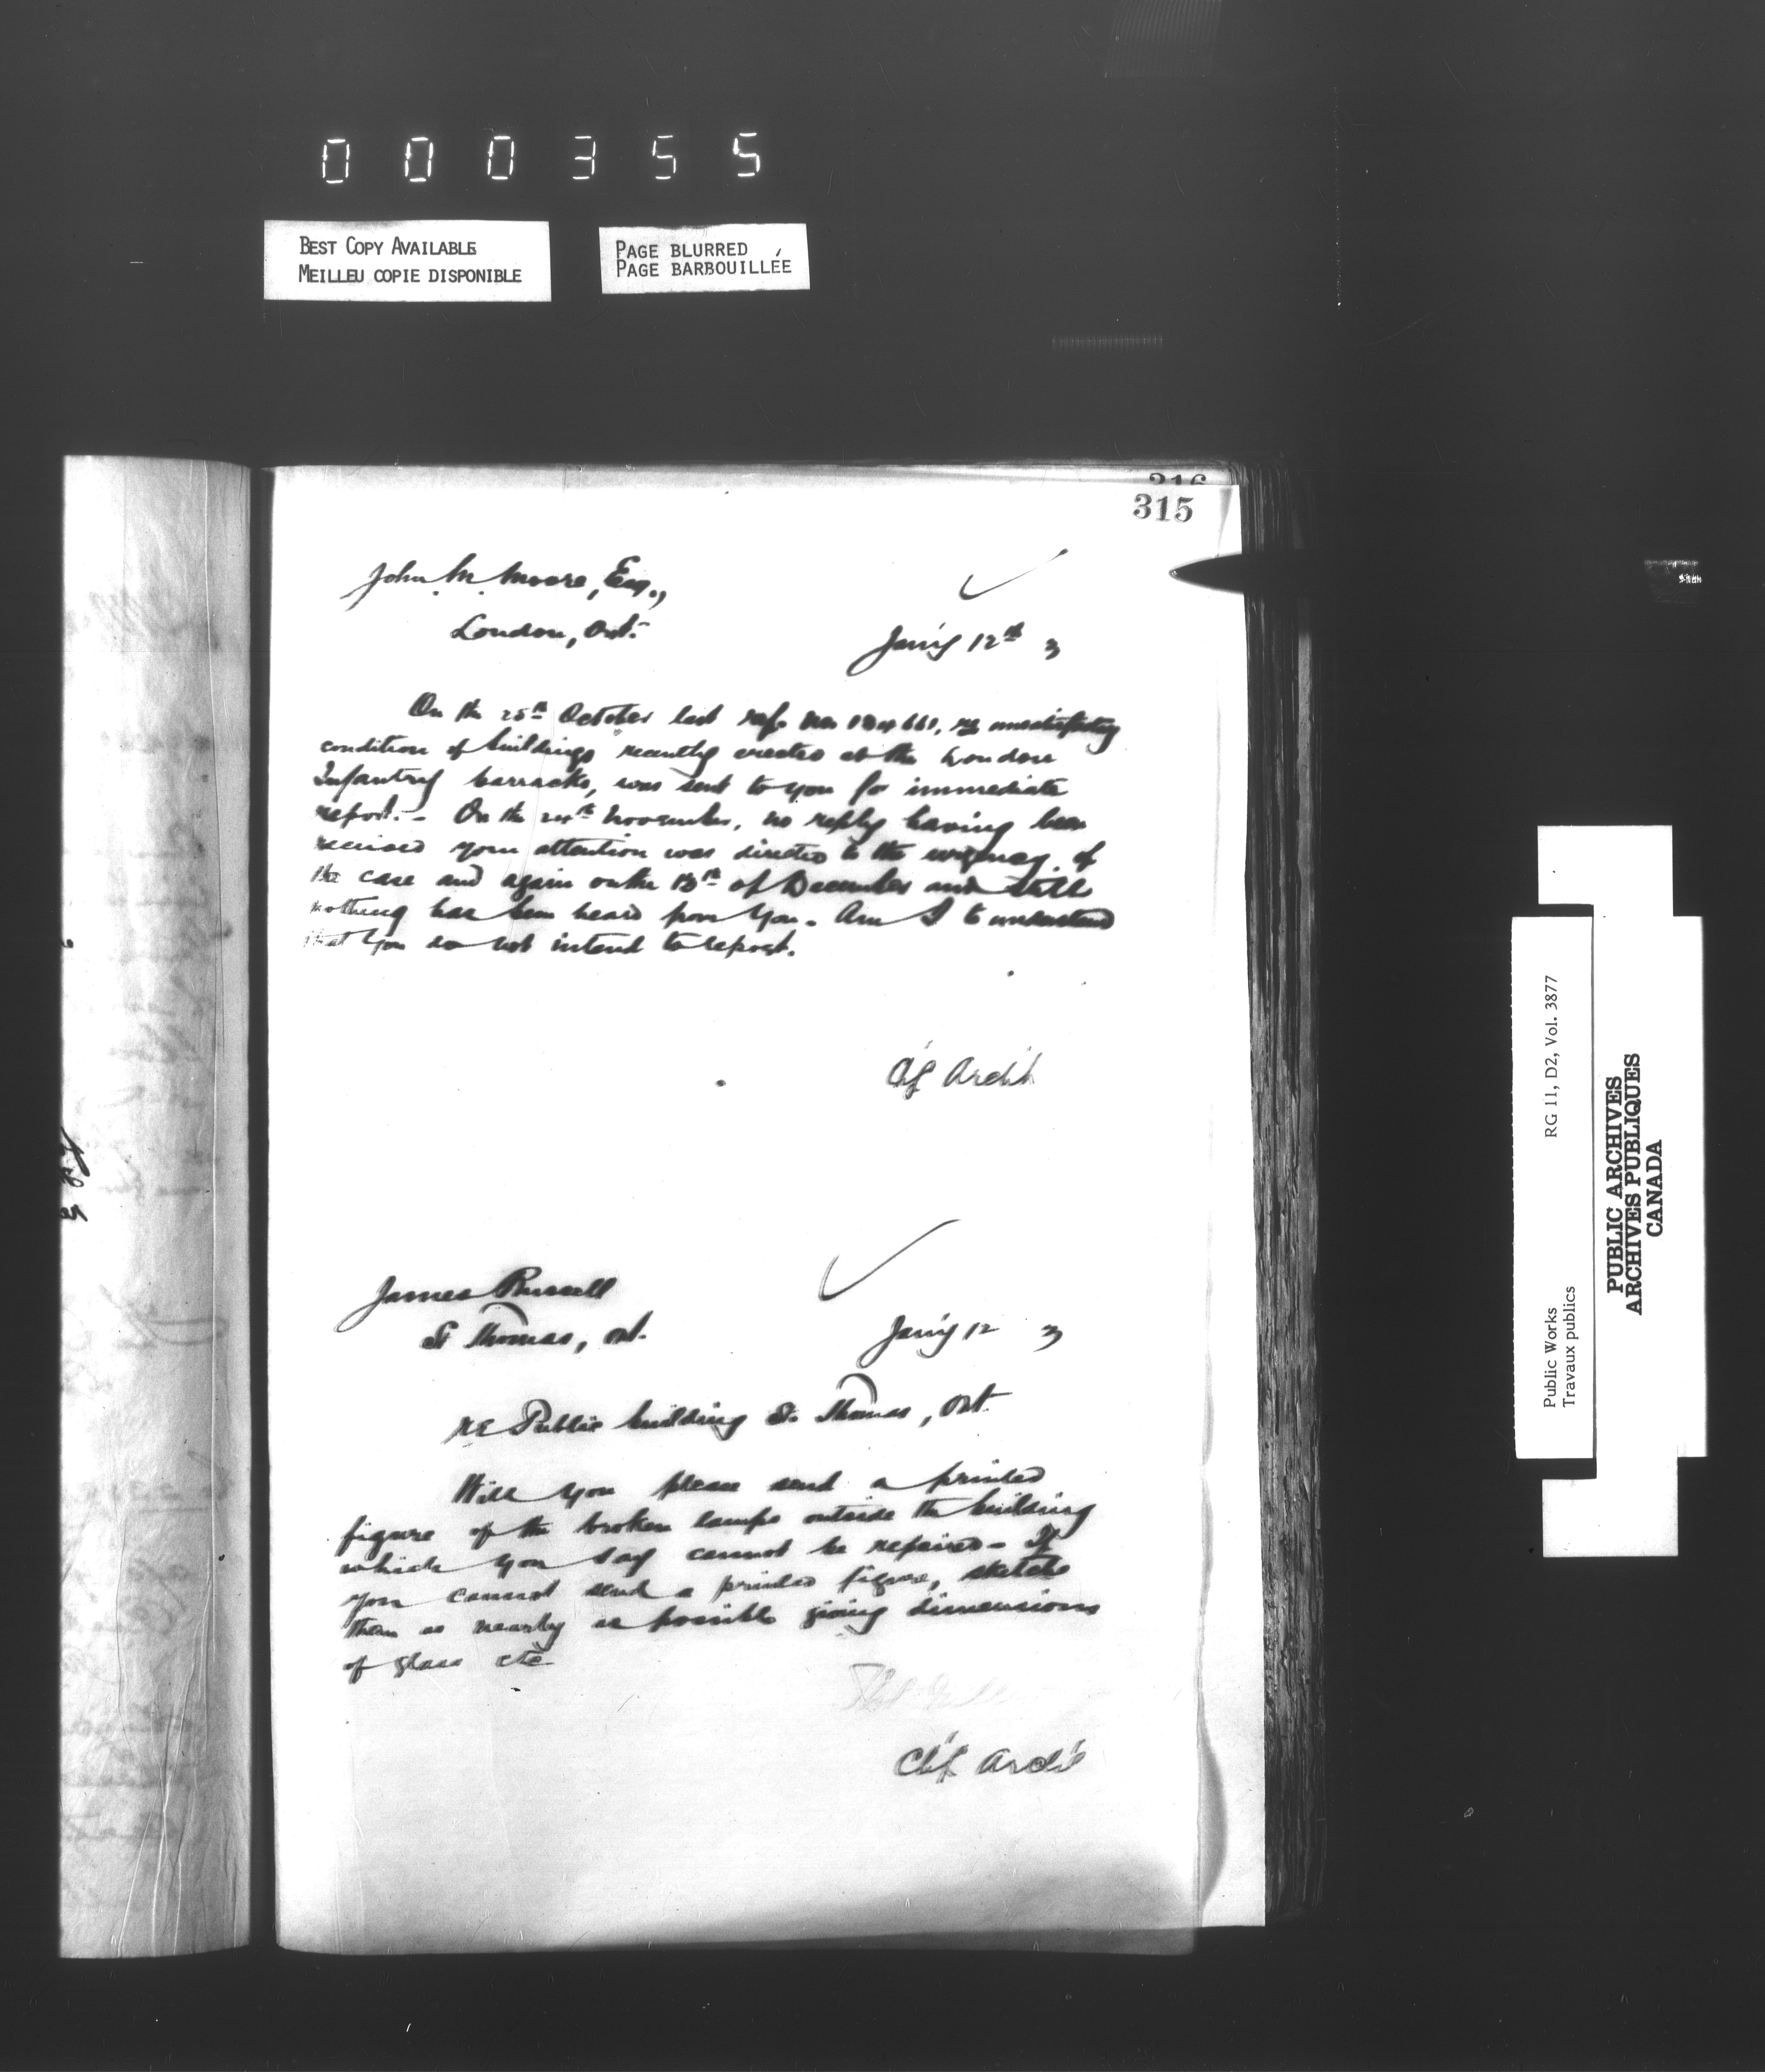 000355
BEST COPY AVAILABLE
MEILLEU COPIE DISPONIBLE
PAGE BLURRED
PAGE BARBOUILLÉE
316
315
John M. Moore, Esq.,
London, Ont.
Jan'y 12th 3
On the 25th October last refce No. 661, re unsatisfactory
condition of buildings recently erected at the London
Infantry barracks, was sent to you for immediate
report. - On the 24th November, no reply having been
received your attention was directed to the urgency of
the case and again on the 13th of December and still
nothing has been heard from you. Am I to understand
that you do not intend to report.
Ch'f Archt
James Russell
St Thomas, Ont.
Jan'y 12 3
re Public building St. Thomas, Ont.
Will you please send a printed
figure of the broken lamps outside the building
which you say cannot be repaired - If
you cannot send a printed figure, sketch
them as nearly as possible giving dimensions
of glass etc
Ch'f Archt
Public Works
Travaux publics
RG 11, D2, Vol. 3877
PUBLIC ARCHIVES
ARCHIVES PUBLIQUES
CANADA